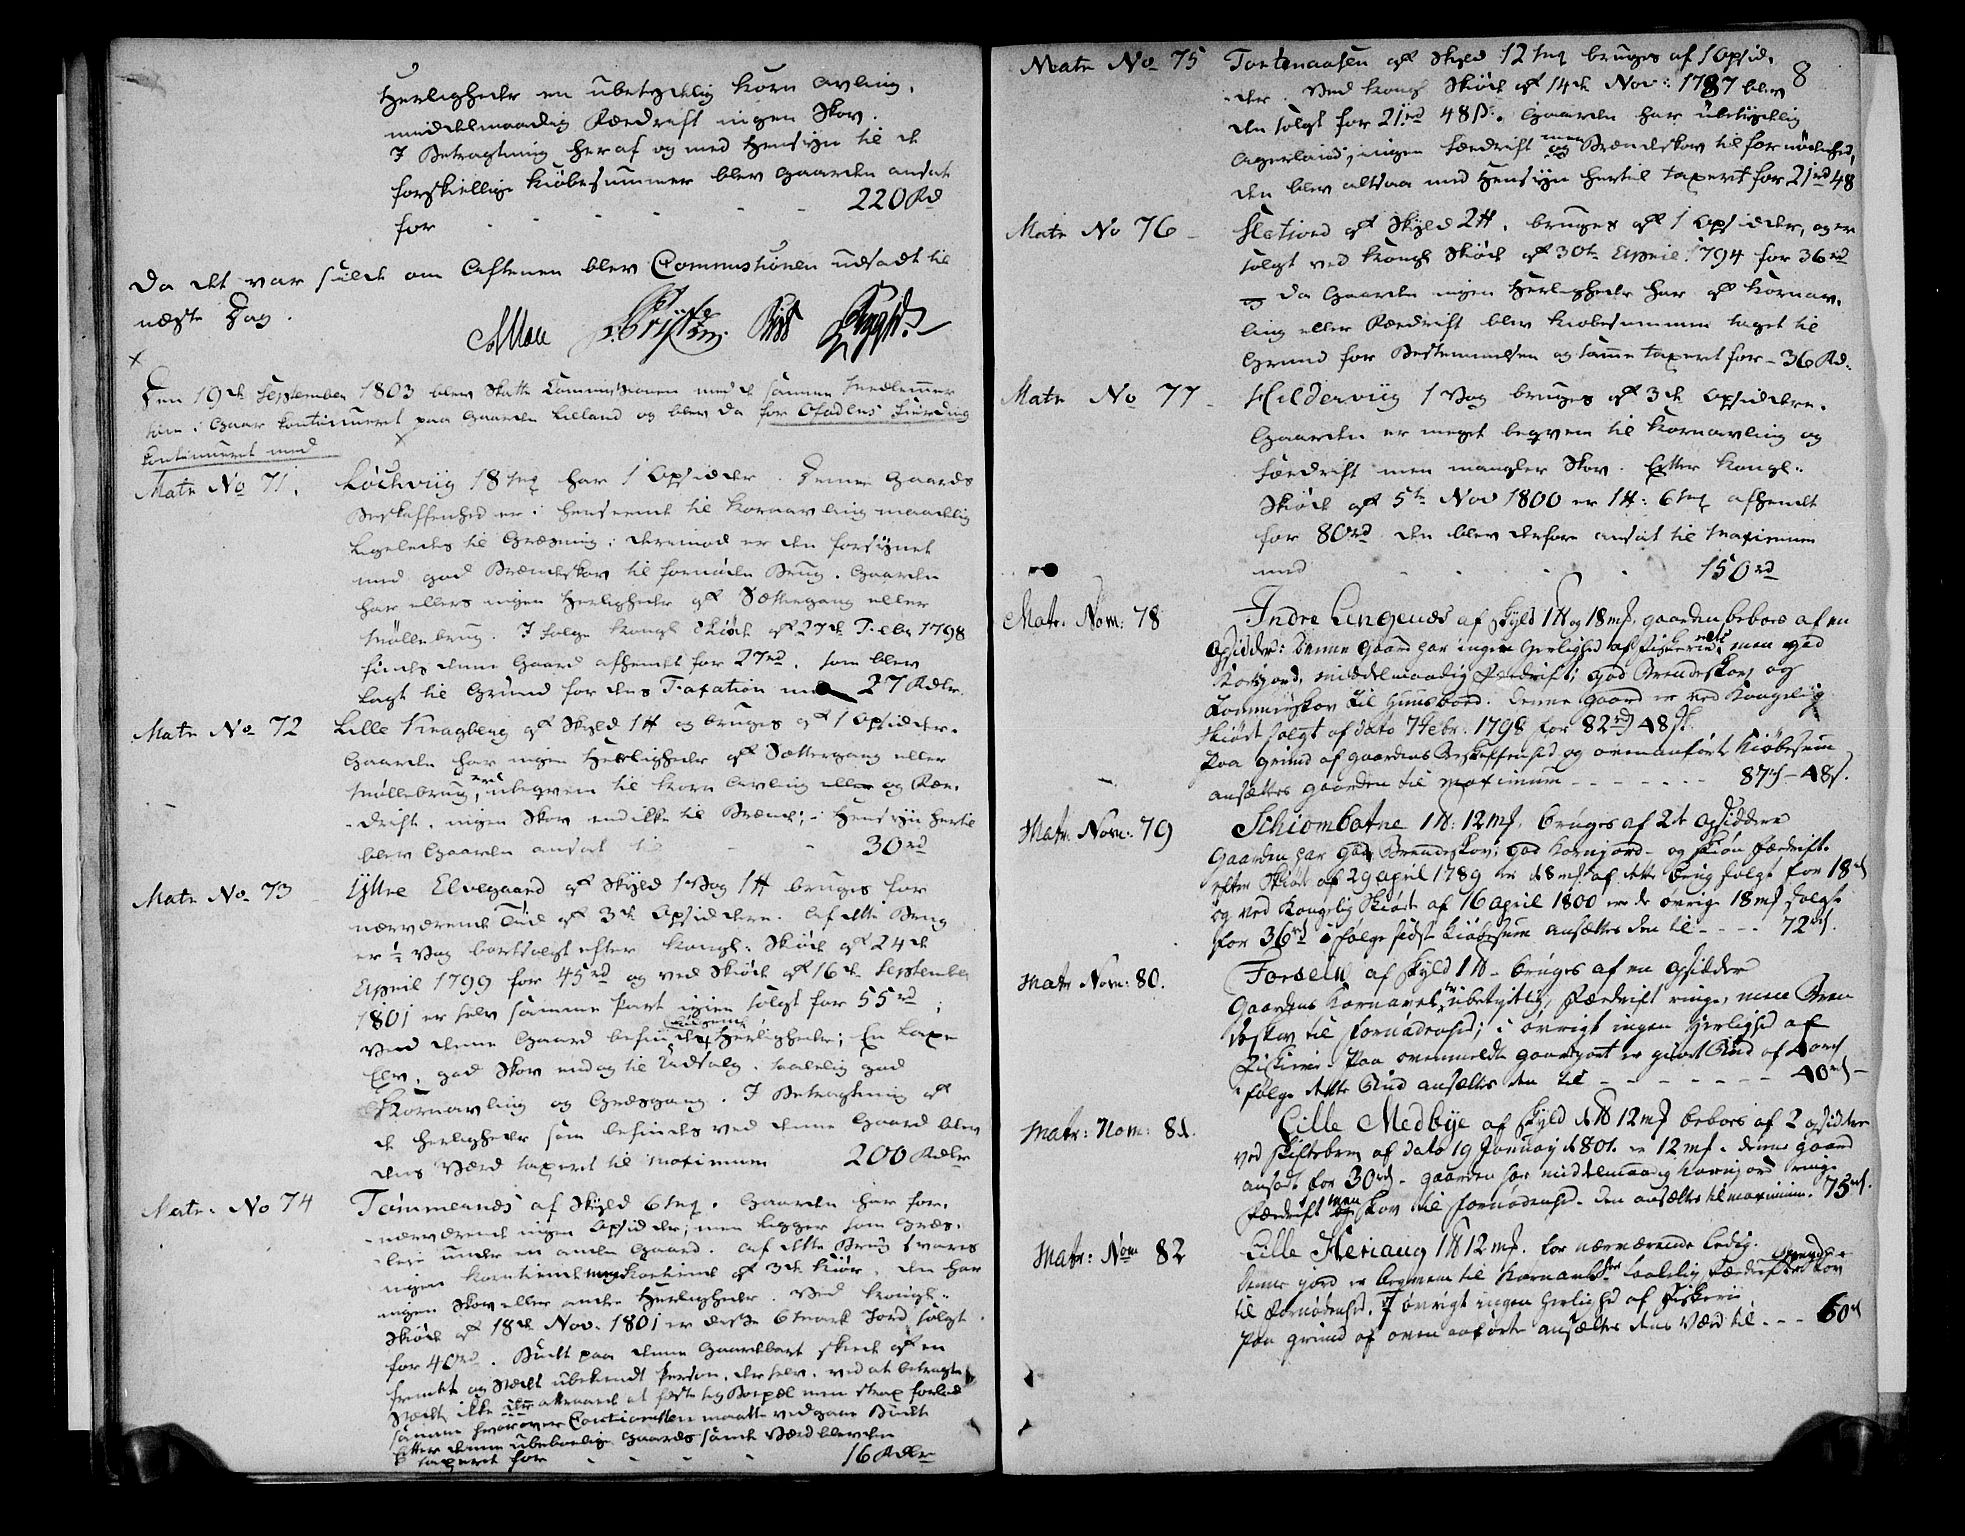 Herligheder en ubetydelig Korn avling,
middelmaadig Fædrift ingen Skov.
I Betragtning heraf og med Hensyn til de
forskiellige Kiøbesummer blev Gaarden ansat
for - - - - 220 Rd
Da det var silde om Aftenen blev Commissionen udsadt til
næste Dag.
Den 19de September 1803 blev Skatte Commissionen med de samme Medlemmer
som i Gaar Continueret paa Gaarden Lilland og blev da for Ofodens Fierding
Continueret med
Matr No 71. Løchviig 18 mk har 1 Opsidder. Denne Gaards
Beskaffenhed er i Henseende til Kornavling maadelig
Ligeledes til Græsning; derimod er den forsynet
med god Brændeskov til fornøden Brug. Gaarden
har ellers ingen Herligheder af Sættergang eller
Møllebrug. I følge Kongl Skiøde af 27de Febr 1798
findes denne Gaard afhændt for 27 rd, som blev
Lagt til Grund for dens Taxation med 27 Rdlr.
Matr No 72 Lille Kragberg af Skyld 1 # og bruges af 1 Opsidder.
Gaarden har ingen Herligheder af Sættergang eller
Møllebrug, ubeqvem til Korn Avling eller og Fæe-
drift, ingen Skov end ikke til Brænde; i Hensyn hertil
blev Gaarden ansat til - - 30 rd
Matr No 73 Ytre Elvegaard af Skyld 1 Vog 1 # bruges for
nærværende Tiid af 3de Opsiddere. Af dette Brug
er ½ Vog bortsolgt efter Kongl. Skiøde af 24de
April 1799 for 45 rd og ved Skiøde af 16de September
1801 er selv samme Part igien solgt for 55 rd;
Ved denne Gaard befindes følgende Herligheder; En Laxe
Elv, god Skov endog til Udsalg, taalelig god
Kornavling og Græsgang. I Betragtning af
de Herligheder som befindes ved denne Gaard blev
dens Værd taxeret til Maximum 200 Rdlr
Matr: No 74 Tømmernæs af Skyld 6 mk. Gaarden har for-
nærværende ingen Opsidder; men ligger som Græs-
leie under en anden Gaard. Af dette Brug svares
ingen Korntiende men Kostiende af 3de Kiør. Den har
ingen Skov eller andre Herligheder. Ved Kongl:
Skiøde af 18de Nov. 1801 er disse 6 Mark Jord solgt
for 40 rd. Budt paa denne Gaardepart skeede af en
fremdt og Stædet ubekiendt Person, der selv, ved at betragte
Stædet ikke attraaede at feste sig Boepæl men strax forlod
samme hvorover Commissionen maatte vedgaae Budet
Efter denne ubeboelige Gaards sande Værd blev den
taxeret for - - - - 16 Rdlr
8
Matr No 75 Tortenaasen af Skyld 12 mk bruges af 1 Opsid-
der. Ved Kongl Skiøde af 14de Nov: 1787 blev
den solgt for 21 rd 48 ß. Gaarden har ubetydelig
Agerland, ingen Fædrift men Brændeskov til fornødenhed,
den blev altsaa med Hensyn hertil taxeret for 21 rd 48
Matr No 76 - Sletjord af Skyld 2 #. bruges af 1 Opsidder, og er
solgt ved Kongl Skiøde af 30te April 1794 for 36 rd
da Gaarden ingen Herligheder har af Kornav-
ling eller Fædrift blev Kiøbesummen taget til
Grund for Bestemmelsen og samme taxeret for - 36 Rd.
Matr No 77 - Hilderviig 1 Vog bruges af 3de Opsiddere.
Gaarden er meget beqvem til Kornavling og
Fædrift men mangler Skov. Efter Kongl:
Skiøde af 5te Nov 1800 er 1 #: 6 mk afhændt
for 80 rd den blev derfore ansat til Maximum
med - - - 150 rd
Matr. Nom: 78 Indre Lengenes af Skyld 1 # og 18 mk, gaarden beboes af en
Opsidder: denne Gaard har ingen Herlighed af Fiskerie, men god
Kornjord, middelmaadig Fædrift; god Brendeskov og
Tømmerskov til Huusbord. denne gaard er ved Kongelig
Skiøde solgt af dato 7 Febr: 1798 for 82 rd 48 s.
Paa grund af gaardens Beskaffenhed og ovenanførte Kiøbesum
ansættes gaarden til Maximum - - - - - 87 rd - 48 s.
Matr. Nom: 79 Schiombotne 1 #: 12 mk, bruges af 2de Opsiddere
Gaarden har god Brendeskov; god Kornjord og skiøn Fædrift.
efter Skiøde af 29 april 1789 er 18 mk af dette brug solgt for 18 rd
og ved Kongelig Skiøde af 16 april 1800 er de øvrige 18 mk solgt
for 36 rd i følge sidst Kiøbesum ansættes den til - - - - 72 rd.
Matr Nom: 80. Forselv af Skyld 1 # - bruges af en Opsidder
Gaardens Kornavel er ubetydelig, Fædrift ringe, men Bren
deskov til Fornødenhed; i øvrigt ingen Herlighed af
Fiskerie. Paa ovenmeldte gaardpart er giort Bud af 40 rd
i følge dette Bud ansættes den til - - - - - - - 40 rd -
Matr: Nom: 81. Lille Medbye af Skyld 1 # 12 mk beboes af 2 Opsiddere
ved Skiftebrev af dato 19 January 1801. er 12 mk. denne gaard
ansadt for 30 rd - gaarden har middelmaadig Kornjord ringe
Fædrift men Skov til Fornødenhed. den ansættes til maximum. 75 rd.
Matr: Nom 82 Lille Heriaug 1 # 12 mk. for nærværende ledig.
denne jord er beqvem til Kornavl har taalelig Fædrift Brendeskov
til Fornødenhed. I øvrigt ingen Herlighed af Fiskerie.
Paa grund af oven anførte ansættes dens Værd til - - - 60 rd